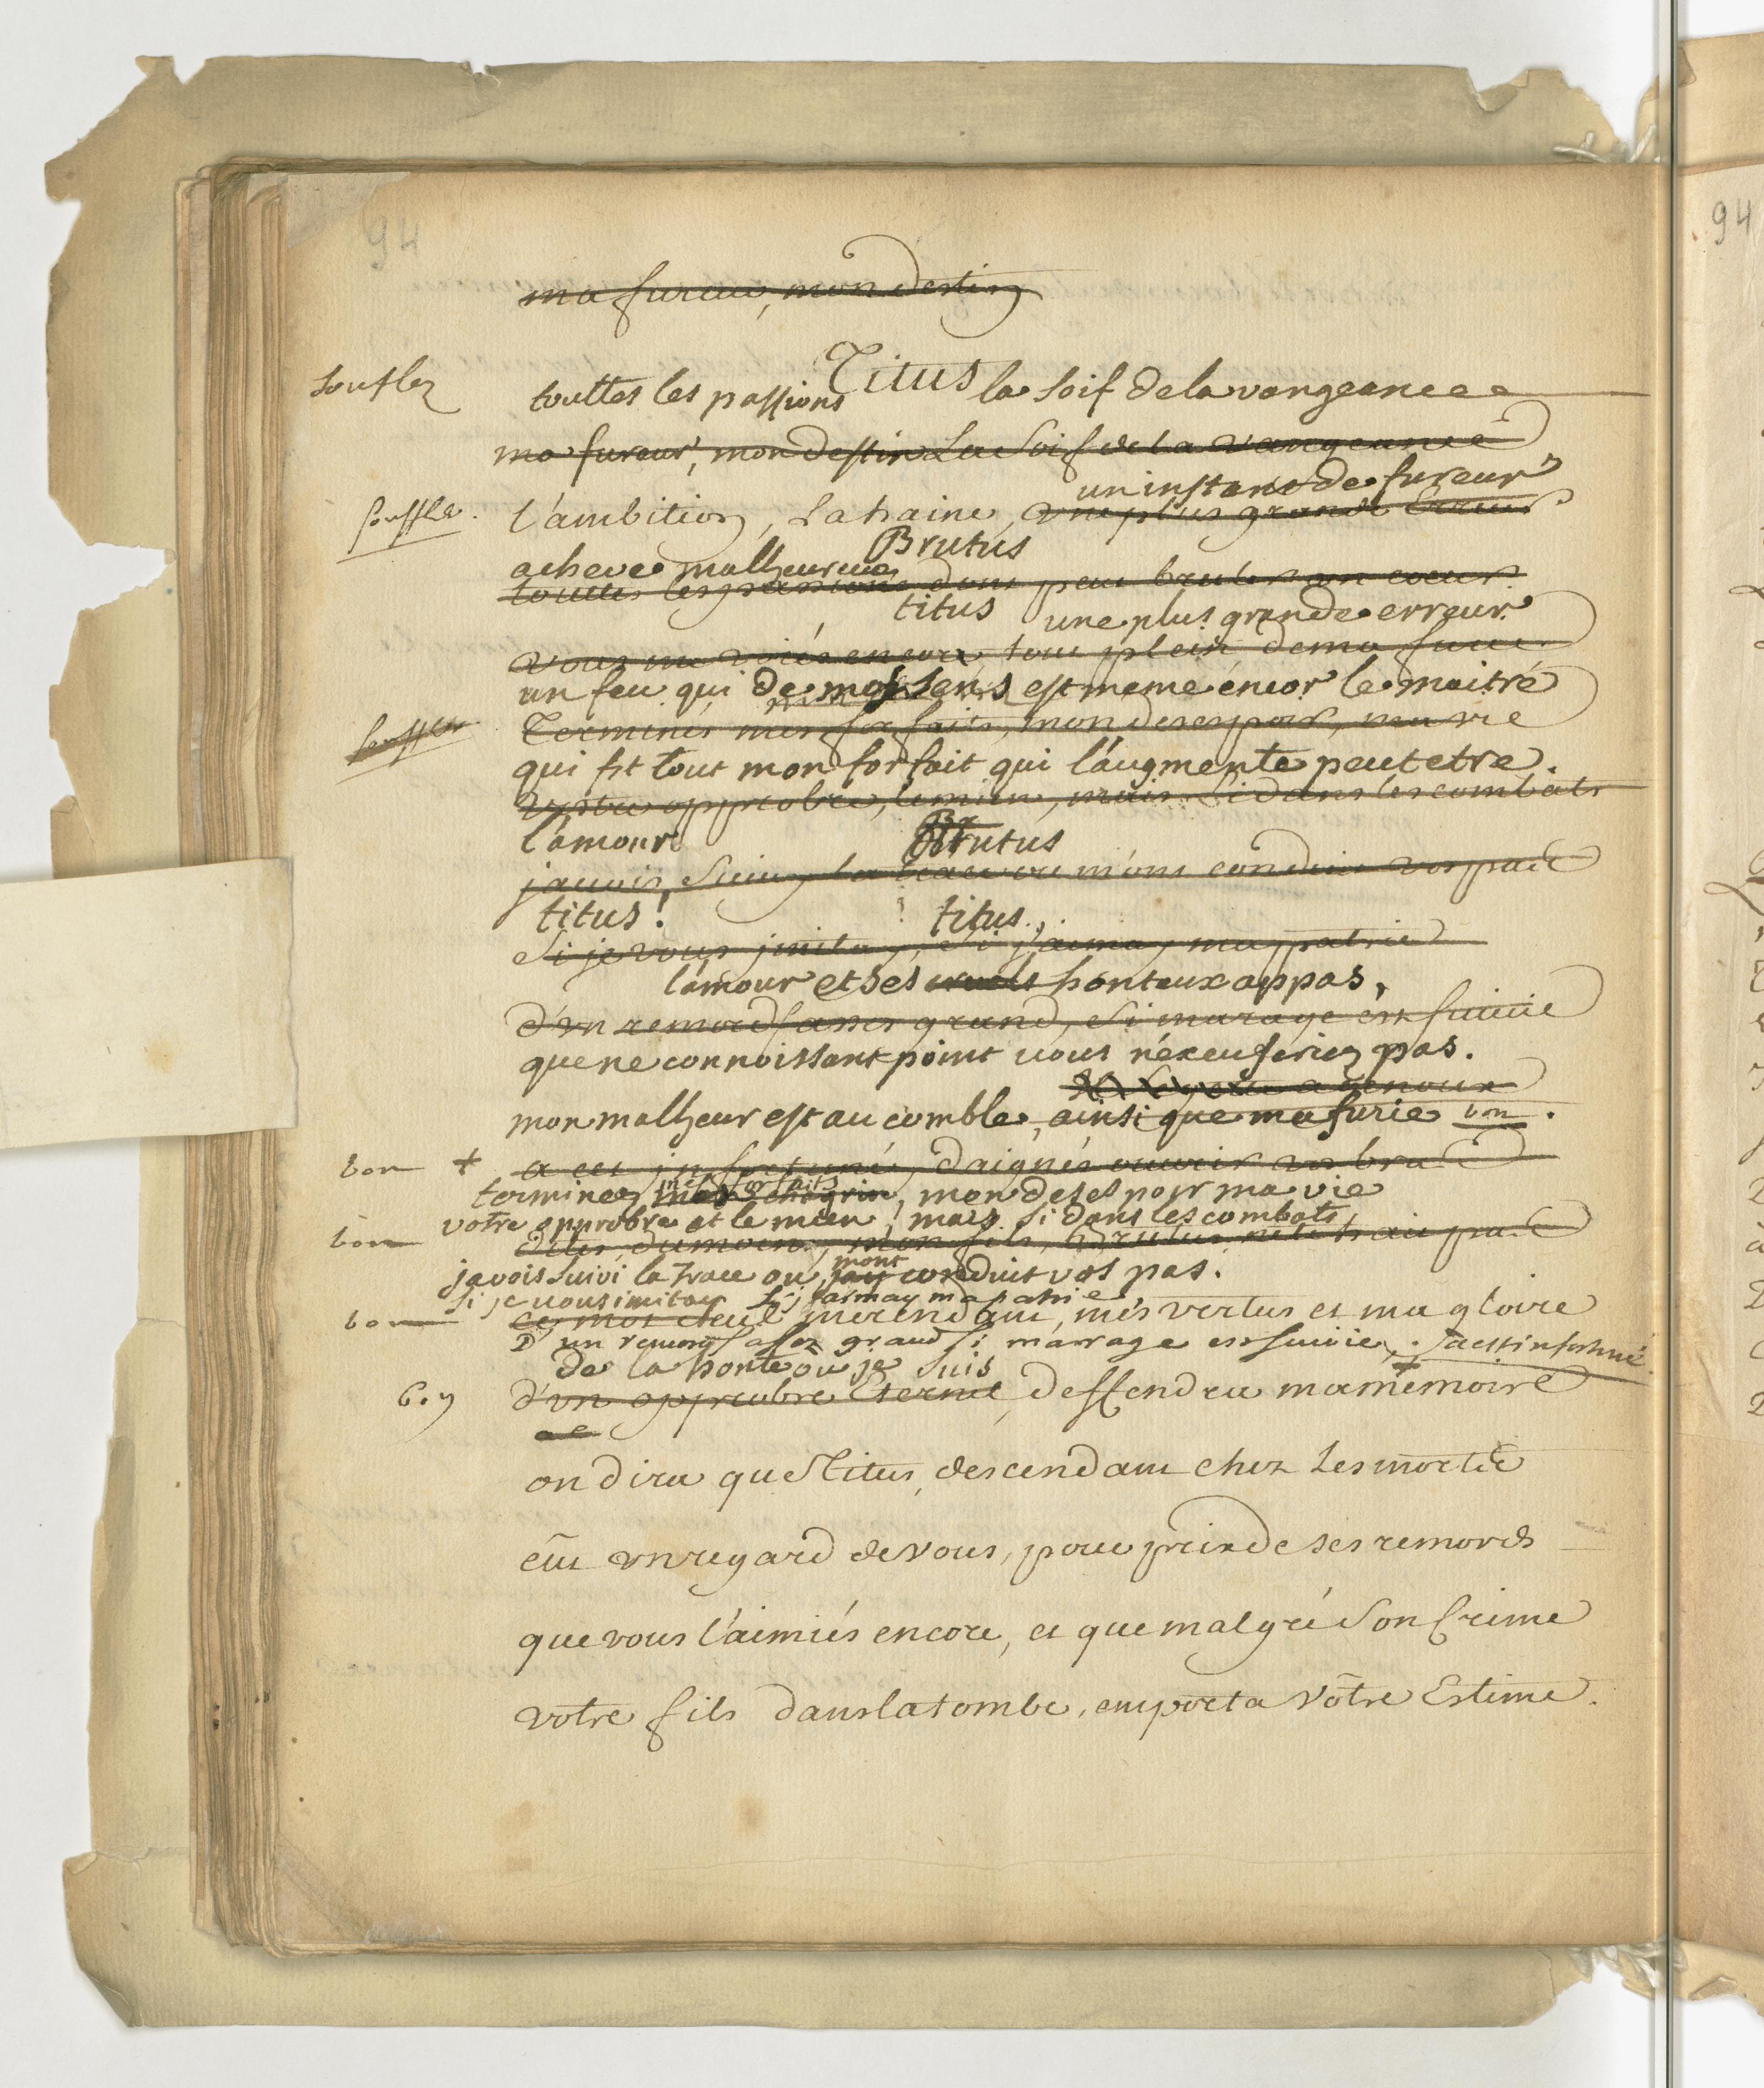 94
ma fureur, mon destin
Titus
souflez touttes les passions la soif de la vangeance
ma fureur, mon destin La soif de la vangeance
un instant de fureur
souffle. l'ambition, La haine, une plus grande Erreur
Brutus
acheve malheureux
touttes les passions dont peut bruler un coeur
titus une plus grande erreur
vous me voiés encore, tout plein de ma furie
un feu qui de mes sens est meme éncor le maitré
souffler Terminés mes forfaits, mon desespoir, ma vie
qui fit tout mon forfait qui l'augmente peut etre.
Votre opprobre, le mien, mais si dans les combats
l'amour Brutus
j'auois suiuy la trace ou m'ont conduit vos pas
titus! titus.
Si je vous jmitay, si j'aimay ma patrie
l'amour et ses cruels honteux appas,
d'un remord assés grand, si ma rage est suiuie
que ne connoissant point vous n'excuseriez pas.
a genoux
mon malheur est au comble, ainsi que ma furie bon.
bon + a cet jnfortuné, daignés ouurir vos bras
terminez mes chagrin, mon desespoir ma vie
mes forfaits
votre opprobre et le mien, mais si dans les combats
bon dites, dumoins, mon fils, Brutus ne te hait pas
javois suivi la trace ou jay conduit vos pas.
mont
si je vous imitay si j'aimay ma patrie
bon ce mot seul me rendant, més vertus et ma gloire
D'un remors assez grand si ma rage est suivie, + a cet infortuné
de la honte ou je suis
d'un opprobre Eternel, deffendra ma mémoire
on dira que Titus, descendant chez Les morts
eût un regard de vous, pour prix de ses remords
que vous l'aimiés encore, et que malgré son Crime
votre fils dans la tombe, emporta vôtre Estime.
94